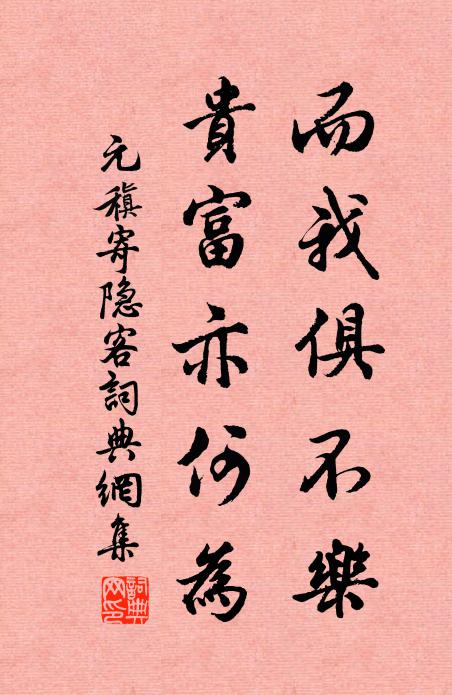 而我俱不樂
貴富亦何為
元稹寄隐客詞典網集
詞典網印